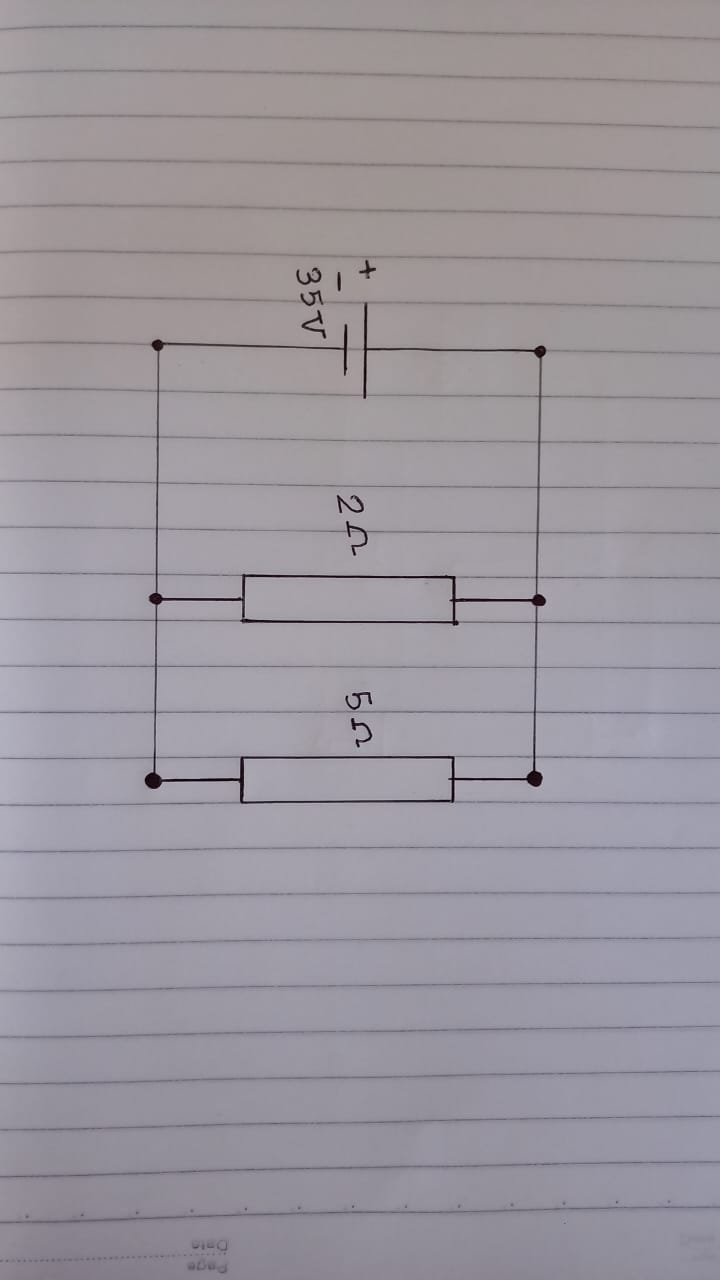 +
−
35V
2Ω
5Ω
Page
Date